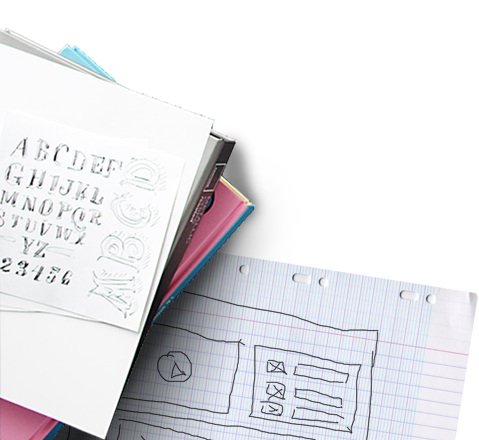 ABCDEF
GHIJKL
MNOPQR
STUVWX
YZ
23456
ABCD